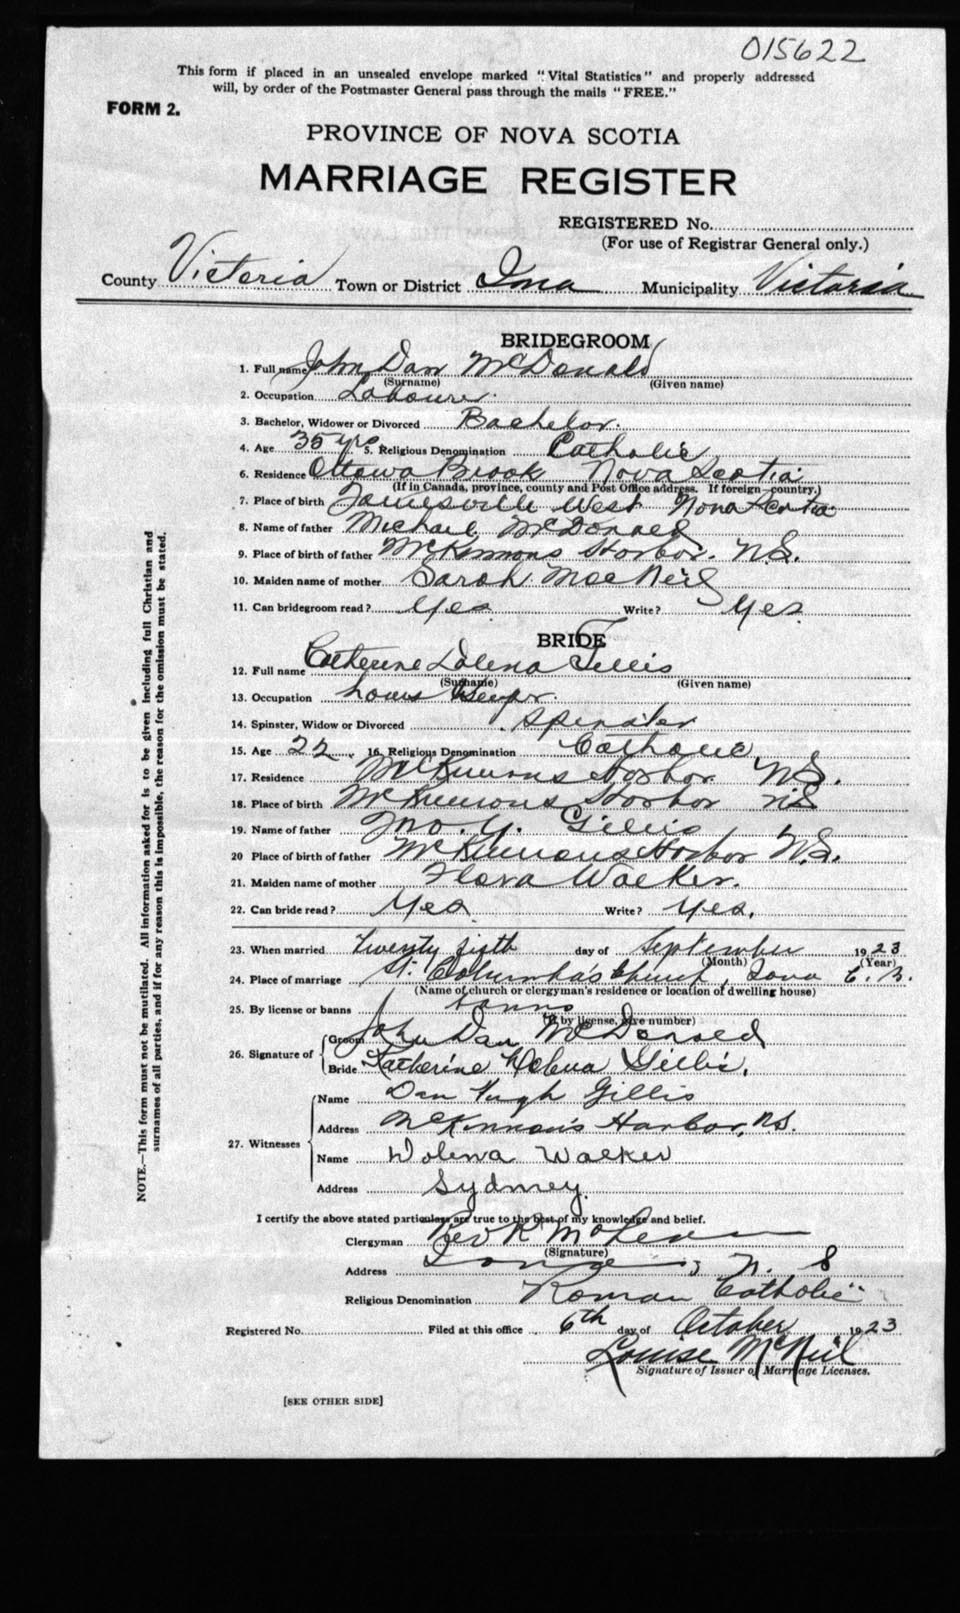 015622
This form if placed in an unsealed envelope marked "Vital Statistics" and properly addressed
will, by order of the Postmaster General pass through the mails "FREE."
FORM 2.
PROVINCE OF NOVA SCOTIA
MARRIAGE REGISTER
REGISTERED No.
(For use of Registrar General only.)
County Victoria Town or District Iona Municipality Victoria
BRIDEGROOM
1. Full name John Dan McDonald
(Surname) (Given name)
2. Occupation Labourer.
3. Bachelor, Widower or Divorced Bachelor.
4. Age 35 yrs 5. Religious Denomination Catholic
6. Residence Ottawa Brook Nova Scotia
(If in Canada, province, county and Post Office address. If foreign—country.)
7. Place of birth Jamesville West Nova Scotia
8. Name of father Michael McDonald
9. Place of birth of father McKinnons Harbor. N.S.
10. Maiden name of mother Sarah MacNeil
11. Can bridegroom read? Yes Write? Yes
BRIDE
12. Full name Catherine Dolena Gillis
(Surname) (Given name)
13. Occupation
14. Spinster, Widow or Divorced Spinster
15. Age 22 16. Religious Denomination Catholic
17. Residence McKinnons Harbor N.S.
18. Place of birth McKinnons Harbor NS
19. Name of father Jno. Y. Gillis
20 Place of birth of father McKinnons Harbor N.S.
21. Maiden name of mother Flora Walker.
22. Can bride read? Yes Write? Yes.
23. When married Twenty sixth day of September 1923
(Month) (Year)
24. Place of marriage St. Columba's Church, Iona C.B.
(Name of church or clergyman's residence or location of dwelling house)
25. By license or banns banns
(If by license, give number)
26. Signature of Groom John Dan McDonald
Bride Katherine Dolena Gillis.
27. Witnesses
Name Dan Hugh Gillis
Address McKinnon's Harbor, N.S.
Name Dolena Walker
Address Sydney
I certify the above stated particulars are true to the best of my knowledge and belief.
Clergyman Rev R McLean
(Signature)
Address Iona, N. S
Religious Denomination Roman Catholic
Registered No. Filed at this office 6th day of October 1923
Louise McNeil
Signature of Issuer of Marriage Licenses.
[SEE OTHER SIDE]
NOTE.—This form must not be mutilated. All information asked for is to be given including full Christian and
surnames of all parties, and if for any reason this is impossible, the reason for the omission must be stated.